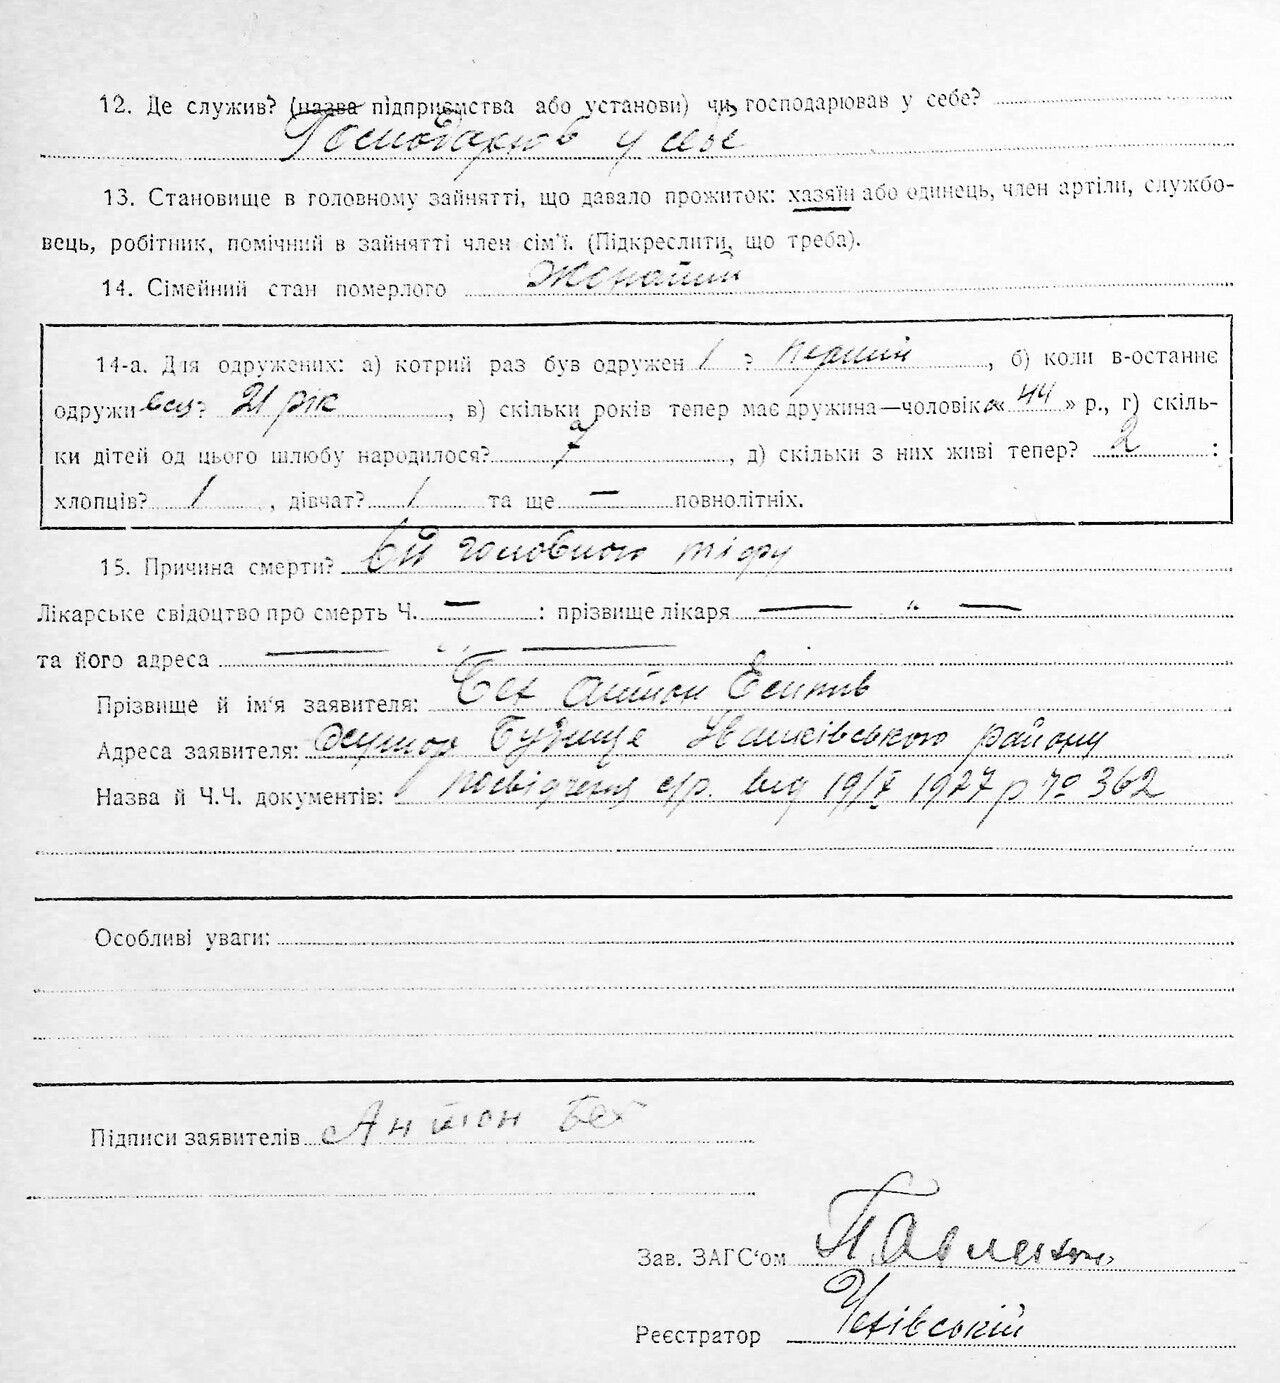 12. Де служив? (назва підприємства або установи) чи господарював у себе?
Господарював у себе
13. Становище в головному зайнятті, що давало прожиток: хазяїн або одинець, член артіли, службо-
вець, робітник, помічний в зайнятті член сім'ї. (Підкреслити, що треба).
14. Сімейний стан померлого Жонатий
14-а. Для одружених: а) котрий раз був одружен 1 ? перший, б) коли в-останнє
одруживсь? 21 рік, в) скільки років тепер має дружина—чоловік «44» р., г) скіль-
ки дітей од цього шлюбу народилося? 7, д) скільки з них живі тепер? 2 :
хлопців? 1, дівчат? 1 та ще — повнолітніх.
15. Причина смерти? Від головного тіфу
Лікарське свідоцтво про смерть Ч. — : прізвище лікаря — " —
та його адреса — " —
Прізвище й ім'я заявителя: Бех Антон Есипів
Адреса заявителя: Будище Іванківського району
Назва й Ч.Ч. документів: посвідчення с/р. від 19/X 1927 р № 362
Особливі уваги:
Підписи заявителів Антон Бех
Зав. ЗАГС'ом
Реєстратор